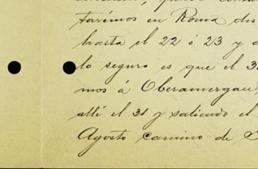 taremos en Roma des
hasta el 22 ó 23 y d
lo seguro es que el 3
mos á Oberamergau,
allí el 31 y saliendo el
Agosto camino de